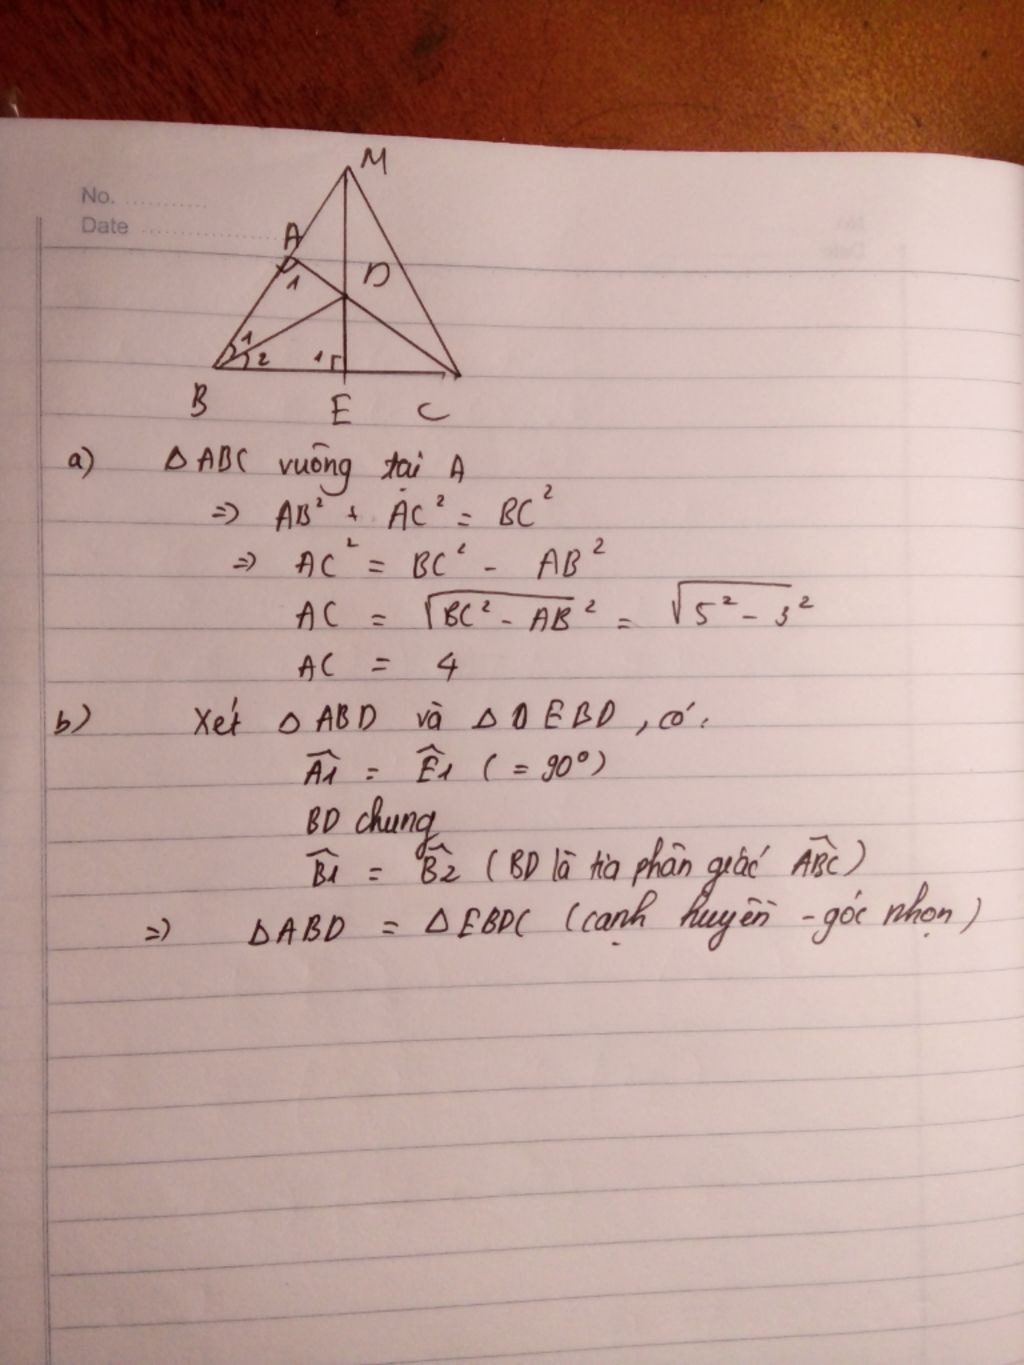 No. ..........
Date ................
M
A
1
D
1
2
1
B
E
C
a) Δ ABC vuông tại A
=> AB² + AC² = BC²
=> AC² = BC² - AB²
AC = √BC² - AB² = √5² - 3²
AC = 4
b) Xét Δ ABD và Δ DEBD, có:
A1 = E1 (= 90°)
BD chung
B1 = B2 (BD là tia phân giác ABC)
=> Δ ABD = Δ EBDC (cạnh huyền - góc nhọn)